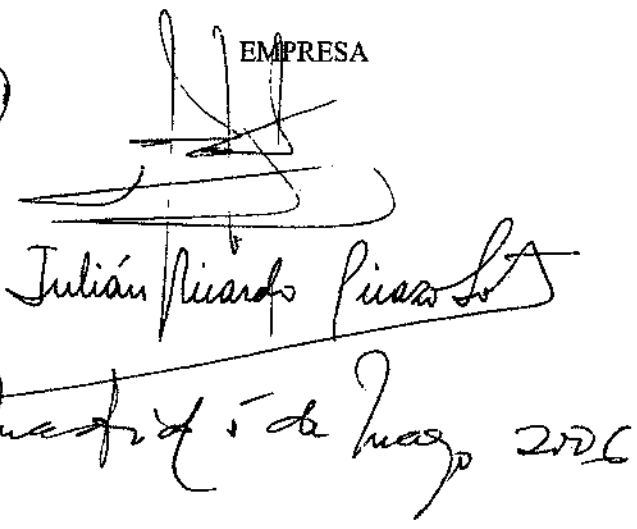 EMPRESA
Julián Ricardo Picazo Soto
Madrid 5 de Mayo 2006